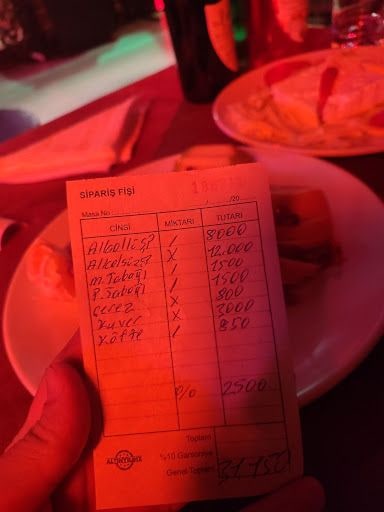 SİPARİŞ FİŞİ
Masa No : ..../..../20...
CİNSİ MİKTARI TUTARI
Alkollü / 8000
Alkolsüz X 12.000
M. Tabağı / 1500
P. Tabağı / 1500
Çerez X 800
Kuver X 3000
Köfte / 850
% 2500
Toplam
%10 Garsoniye
Genel Toplam 31.150